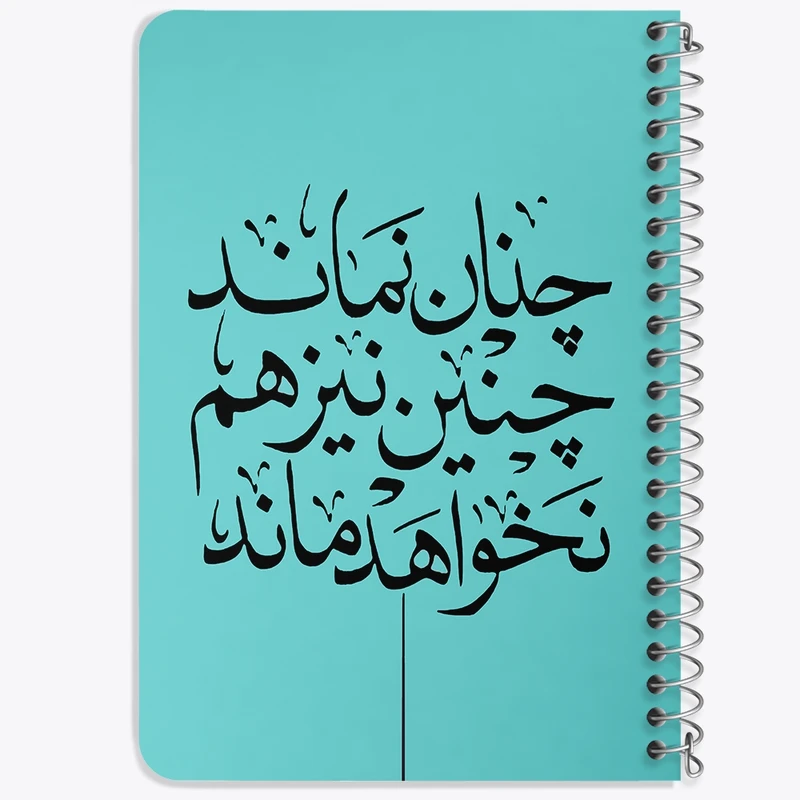 چنان نماند
چنین نیز هم
نخواهد ماند